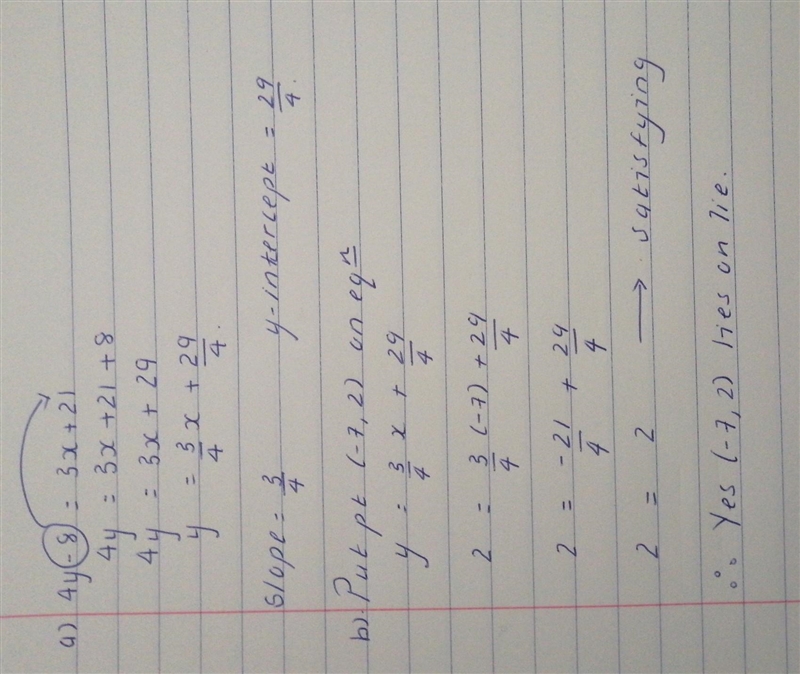 a) 4y - 8 = 3x + 21
4y = 3x + 21 + 8
4y = 3x + 29
y = 3/4 x + 29/4.
Slope = 3/4 y-intercept = 29/4.
b) Put pt (-7, 2) on eqn
y = 3/4 x + 29/4
2 = 3/4 (-7) + 29/4
2 = -21/4 + 29/4
2 = 2 → satisfying
∴ Yes (-7, 2) lies on lie.